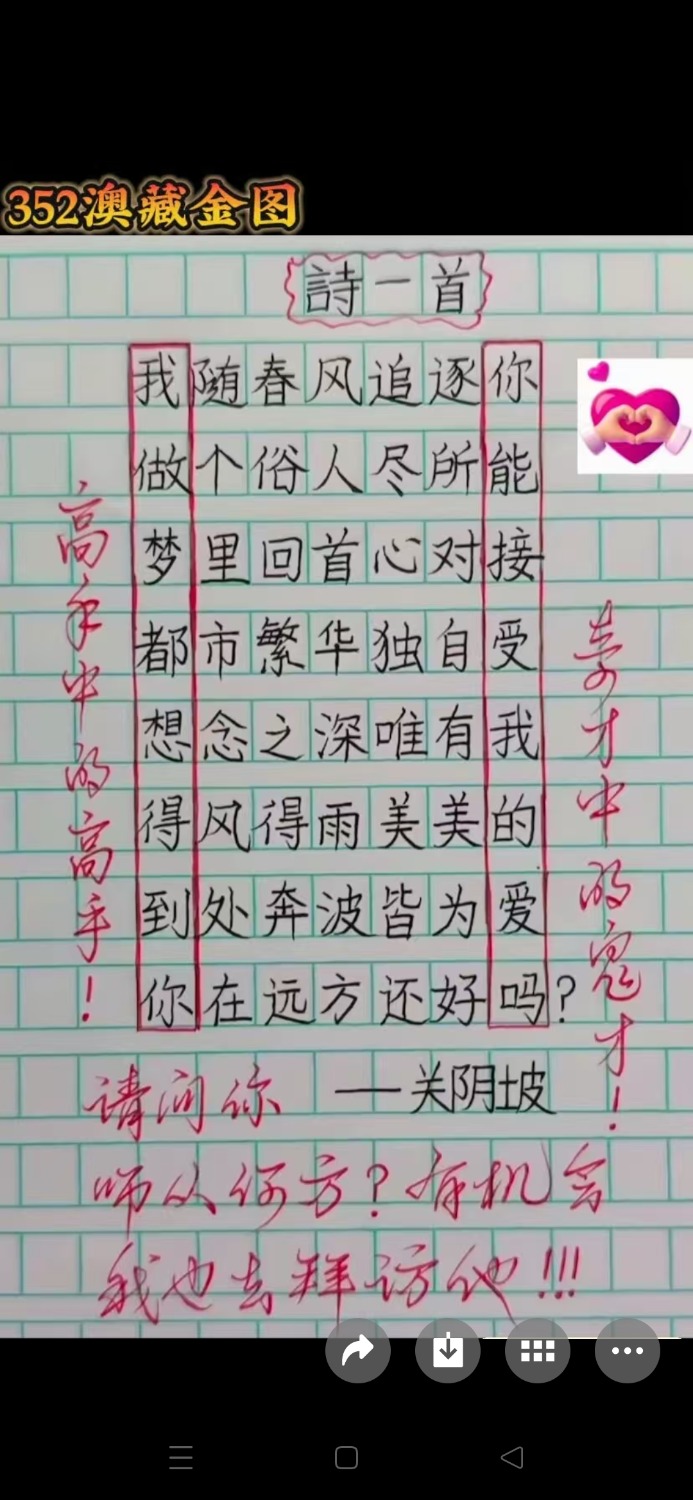 352澳藏金图
詩一首
我随春风追逐你
做个俗人尽所能
梦里回首心对接
都市繁华独自受
想念之深唯有我
得风得雨美美的
到处奔波皆为爱
你在远方还好吗?
——关阴坡
高手中的高手!
奇才中的鬼才!
请问你
师从何方?有机会
我也去拜访他!!!